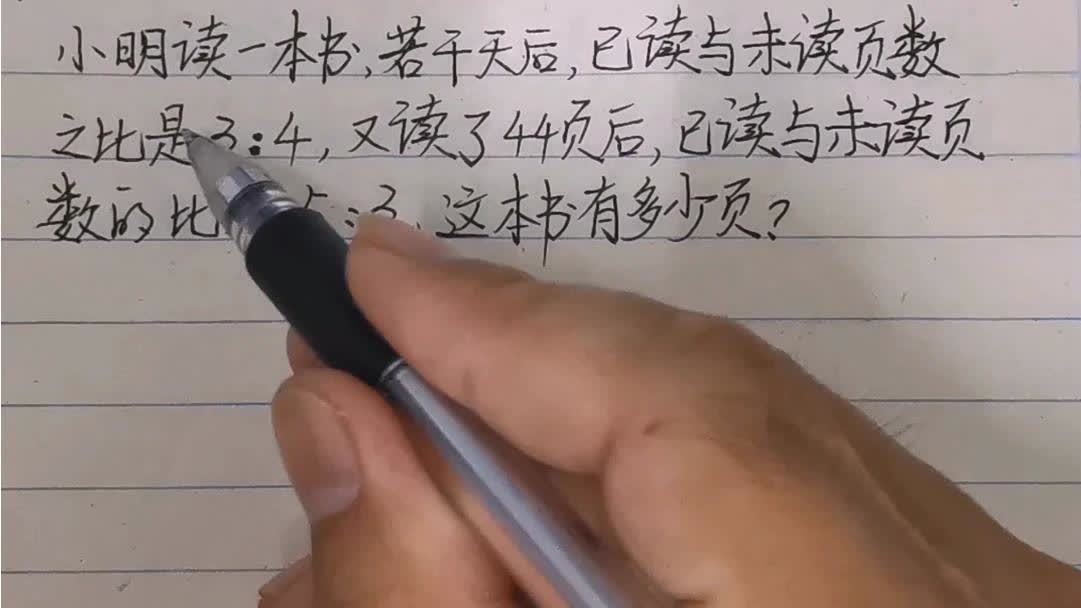 小明读一本书,若干天后,已读与未读页数
之比是3:4,又读了44页后,已读与未读页
数的比 5:3,这本书有多少页?